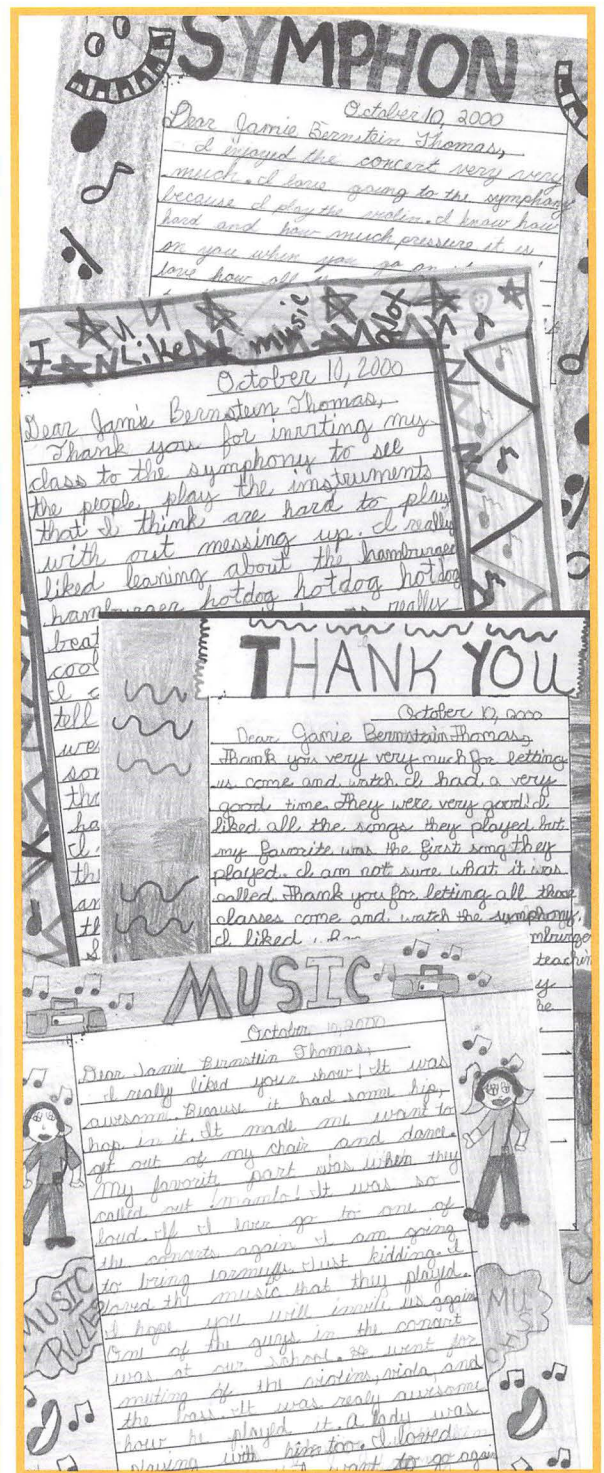 SYMPHON
October 10, 2000
Dear Jamie Bernstein Thomas,
I enjoyed the concert very very
much. I love going to the symphony
because I play the violin. I know how
hard and how much pressure it is
on you when you go on
love how all
I Like music alot
October 10, 2000
Dear Jamie Bernstein Thomas,
Thank you for inviting my
class to the symphony to see
the people play the instruments
that I think are hard to play
with out messing up. I really
liked leaning about the hamburger
hamburger hotdog hotdog hotdog
beat really
cool
I
tell
THANK YOU
October 10, 2000
Dear Jamie Bernstein Thomas,
Thank you very very much for letting
us come and watch. I had a very
good time. They were very good! I
liked all the songs they played but
my favorite was the first song they
played. I am not sure what it was
called. Thank you for letting all those
classes come and watch the symphony.
I liked mburger
teachin
MUSIC
October 10, 2000
Dear Jamie Bernstein Thomas,
I really liked your show! It was
awesome. Because it had some hip,
hop in it. It made me want to
get out of my chair and dance.
My favorite part was when they
called out mambo! It was so
loud. If I ever go to one of
the concerts again I am going
to bring earmuffs. Just kidding. I
loved the music that they played.
I hope you will invite us again
One of the guys in the consert
was at our school. He went for
muting of the violins, viola, and
the bass. It was realy awesome
how he played it. A lady was
playing with him too. I loved
want to go again
MUSIC
RULES
MU